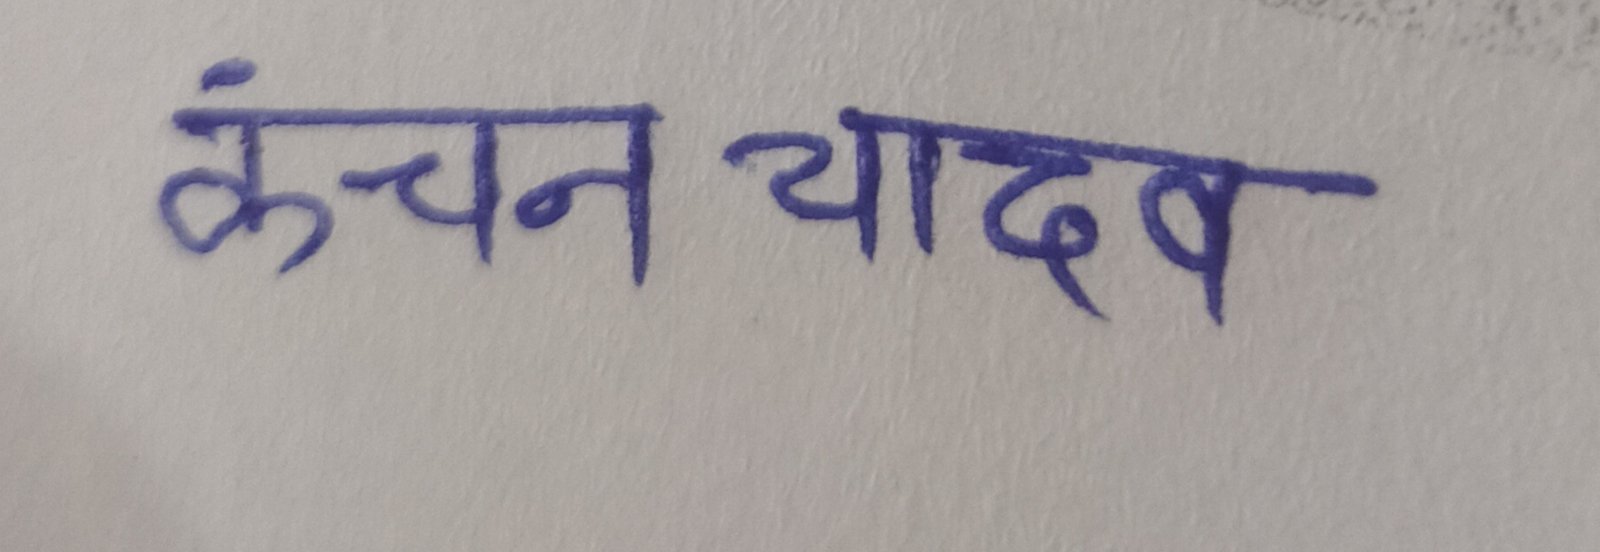 कंचन यादव